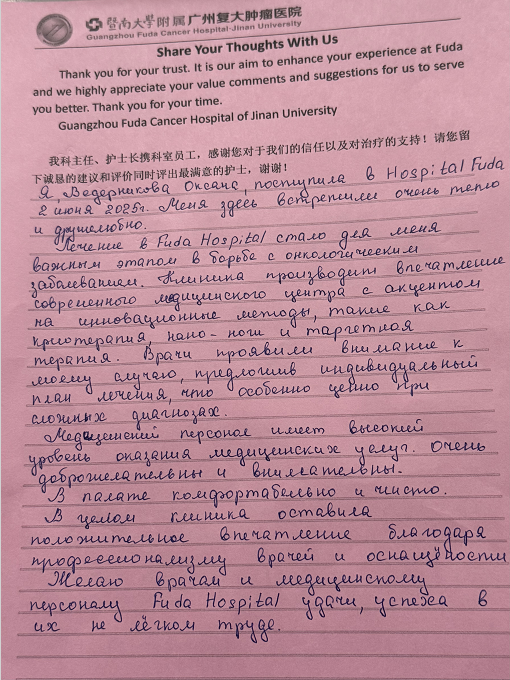 暨南大学附属广州复大肿瘤医院
Guangzhou Fuda Cancer Hospital·Jinan University
Share Your Thoughts With Us
Thank you for your trust. It is our aim to enhance your experience at Fuda
and we highly appreciate your value comments and suggestions for us to serve
you better. Thank you for your time.
Guangzhou Fuda Cancer Hospital of Jinan University
我科主任、护士长携科室员工，感谢您对于我们的信任以及对治疗的支持！请您留
下诚恳的建议和评价同时评出最满意的护士，谢谢！
Я, Ведерникова Оксана, поступила в Hospital Fuda
2 июня 2025г. Меня здесь встретили очень тепло
и дружелюбно.
Лечение в Fuda Hospital стало для меня
важным этапом в борьбе с онкологическим
заболеванием. Клиника производит впечатление
современного медицинского центра с акцентом
на инновационные методы, такие как
криотерапия, нано-ножи и таргетная
терапия. Врачи проявили внимание к
моему случаю, предложив индивидуальный
план лечения, что особенно ценно при
сложных диагнозах.
Медицинский персонал имеет высокий
уровень оказания медицинских услуг. Очень
доброжелательны и внимательны.
В палате комфортабельно и чисто.
В целом клиника оставила
положительное впечатление благодаря
профессионализму врачей и оснащёности
Желаю врачам и медицинскому
персоналу Fuda Hospital удачи, успеха в
их не лёгком труде.